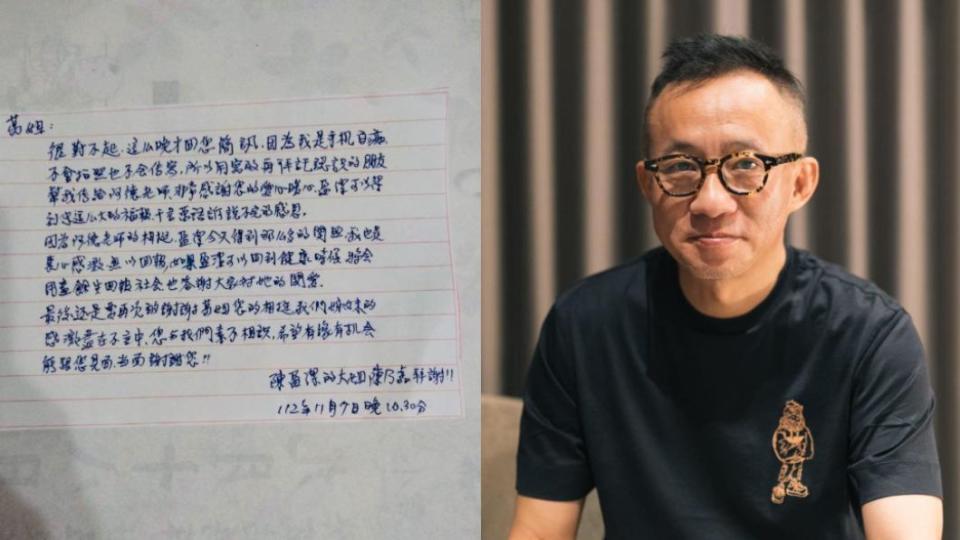 葛姐：
很對不起，這么晚才回您簡訊，因為我是手机白痴
不會拍照也不会传寄，所以用寫的再拜託
的朋友
幫我传給阿德老师，非常感謝您的愛心
心，盈潔可以得
到您這么大的福報，千言萬語訴說不完的感恩。
因為阿德老师的相挺，盈潔今天得到那么多的關照，我也是
萬分感激，無以回報，如果盈潔可以回到健康時候，將會
用盡餘生回饋社会也答謝大家对她的關愛。
最後還是要再次的謝謝葛姐您的相挺，我們姊妹的
感激盡在不言中，您与我們素不相識，希望有緣有机会
能跟您見面，当面謝謝您!!
陳盈潔的大姐陳乃
拜謝!!
112年11月7日晚10.30分